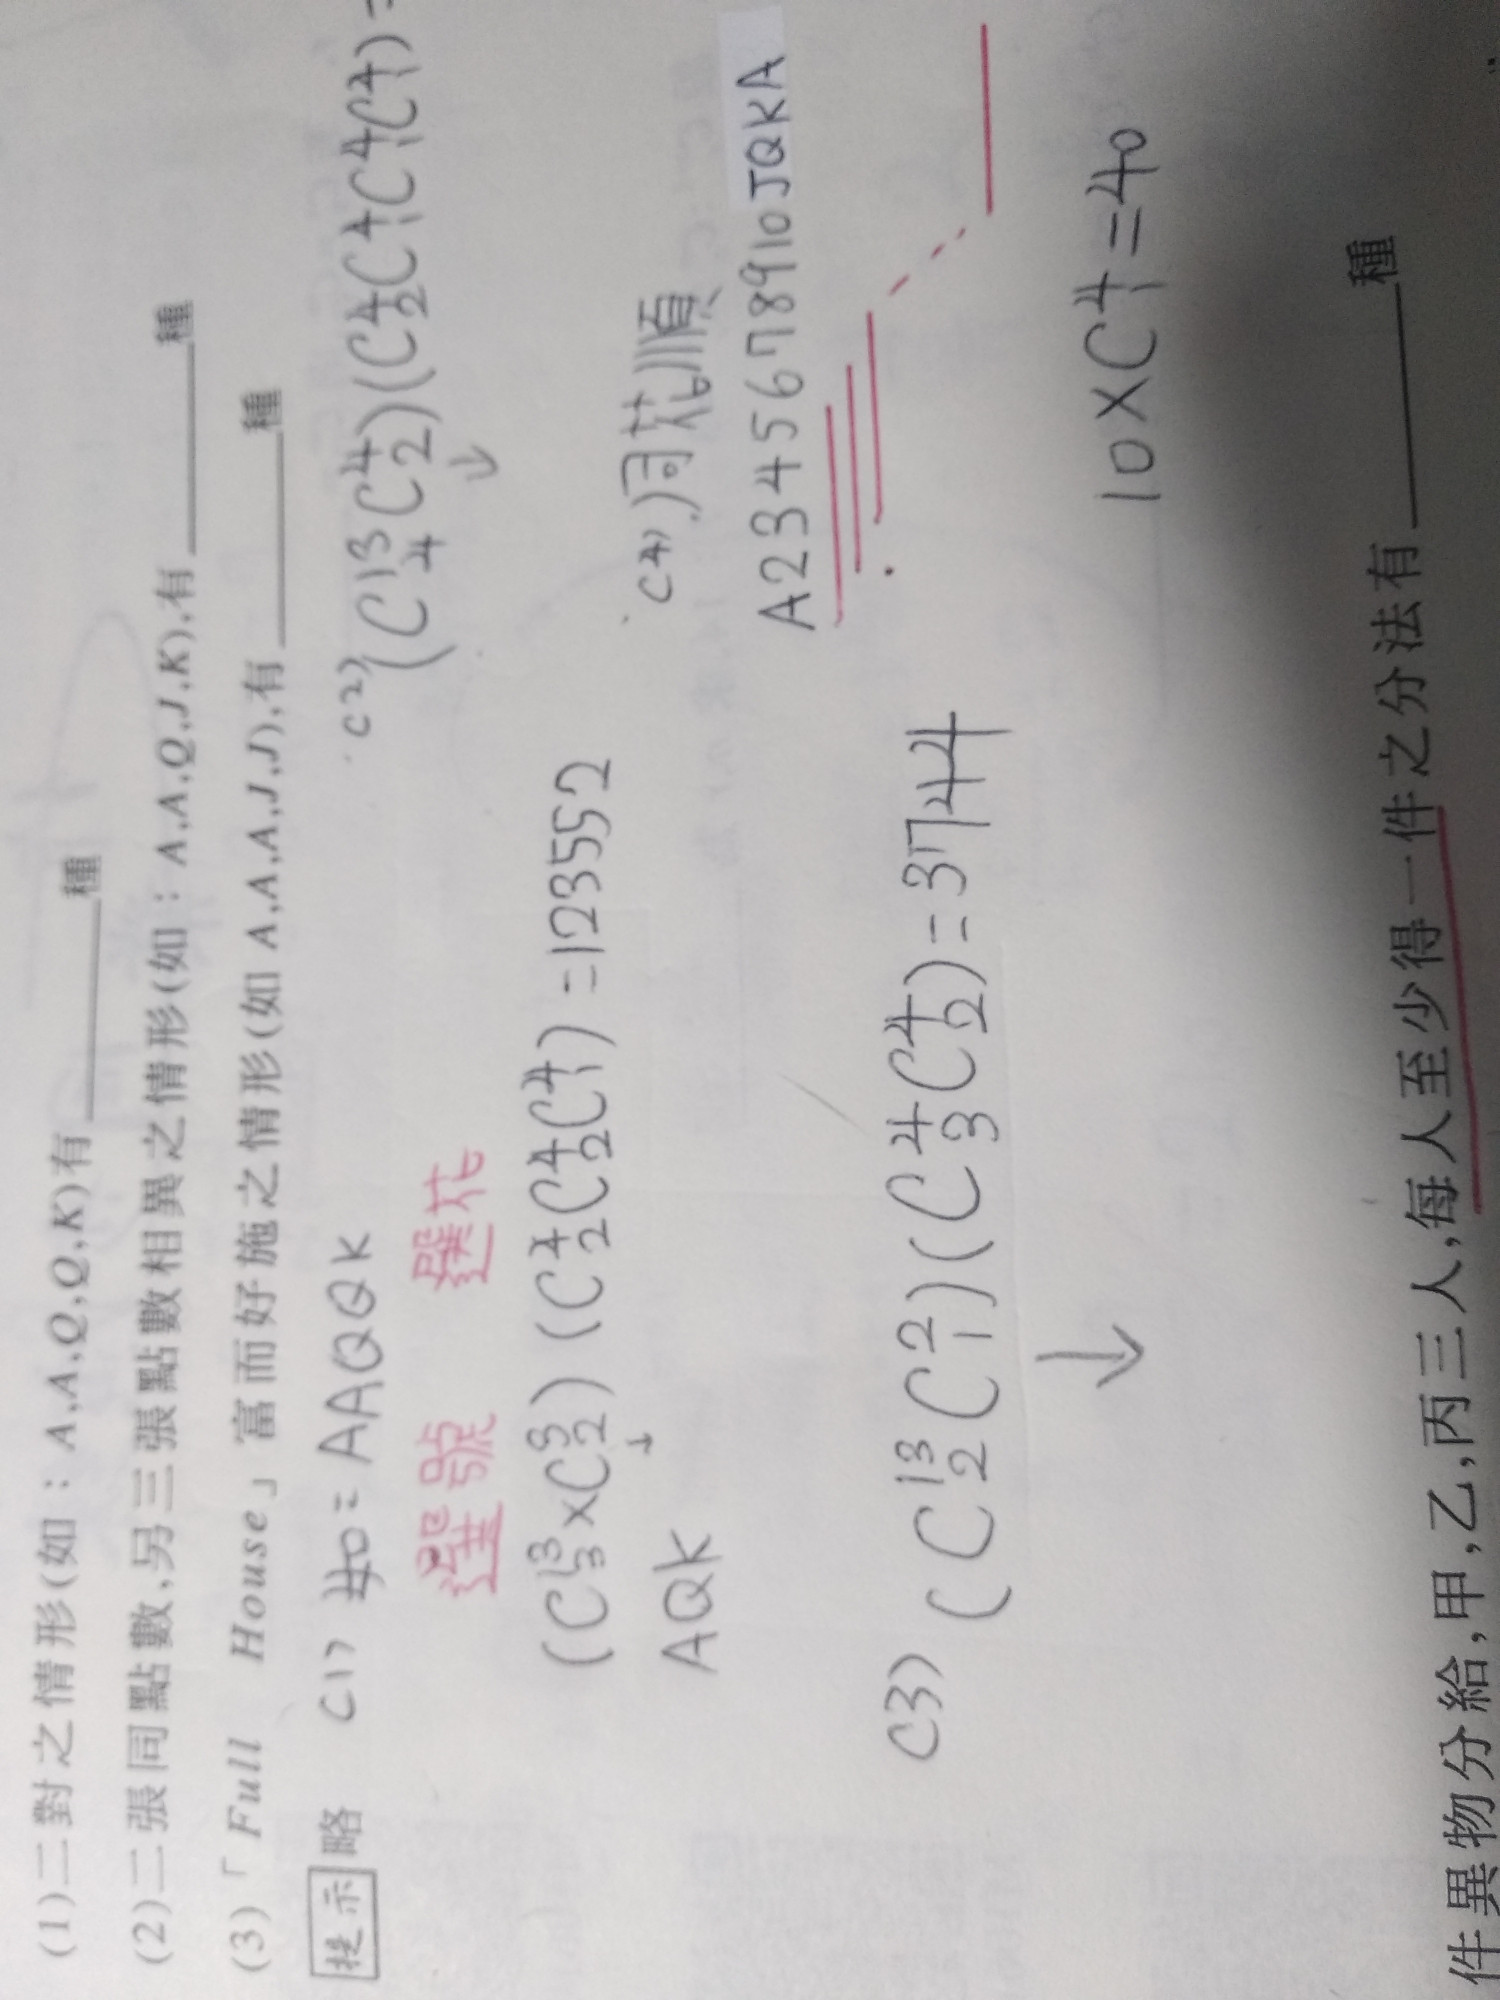 (1)二對之情形(如：A,A,Q,Q,K)有______種
(2)二張同點數,另三張點數相異之情形(如：A,A,Q,J,K),有______種
(3)「Full House」富而好施之情形(如A,A,A,J,J),有______種
提示 略
(1) 如=AAQQK
選號 選花
(C¹³₃×C³₂)(C⁴₂C⁴₂C⁴₁)=123552
AQK
(2)
(C¹³₄C⁴₂)(C⁴₂C⁴₁C⁴₁C⁴₁)=
(3) (C¹³₂C²₁)(C⁴₃C⁴₂)=3744
(4) 同花順
A2345678910JQKA
10×C⁴₁=40
件異物分給,甲,乙,丙三人,每人至少得一件之分法有______種